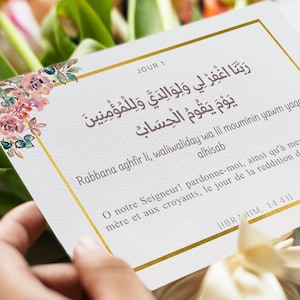 JOUR 1
رَبَّنَا اغْفِرْ لِي وَلِوَالِدَيَّ وَلِلْمُؤْمِنِينَ
يَوْمَ يَقُومُ الْحِسَابُ
Rabbana aghfir li, waliwaliday wa lil mouminin yawm
alhisab
O notre Seigneur! pardonne-moi, ainsi qu'à
mère et aux croyants, le jour de la reddition
[IBRAHIM, 14:41]